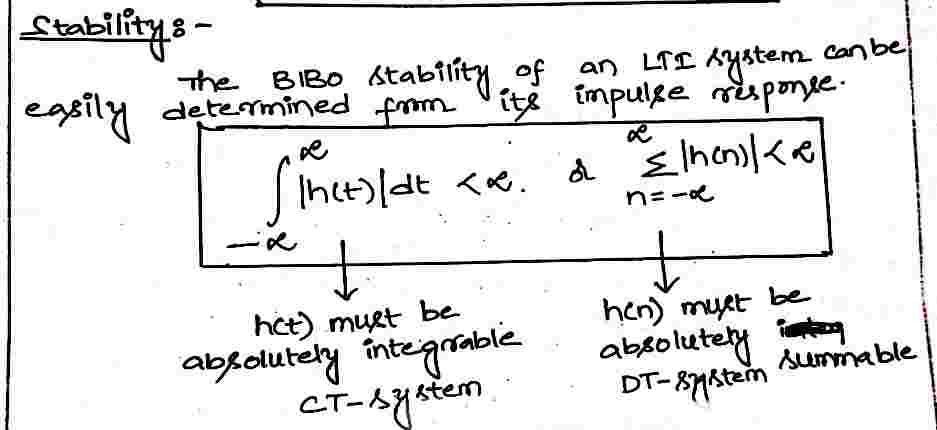 Stability :-
The BIBO stability of an LTI system can be
easily determined from its impulse response.
∫_{-∞}^{∞} |h(t)| dt < ∞. or ∑_{n=-∞}^{∞} |h(n)| < ∞
h(t) must be
absolutely integrable
CT-system
h(n) must be
absolutely summable
DT-system